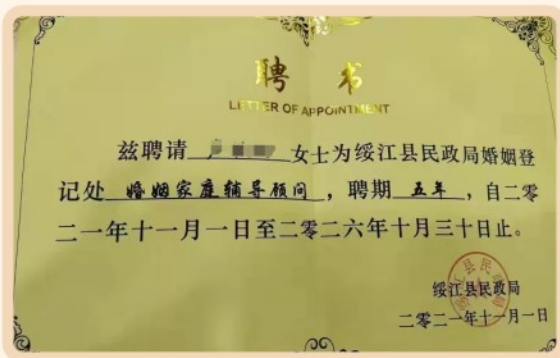 聘书
LETTER OF APPOINTMENT
兹聘请 女士为绥江县民政局婚姻登
记处 婚姻家庭辅导顾问，聘期 五年，自二零
二一年十一月一日至二零二六年十月三十日止。
绥江县民政局
二零二一年十一月一日